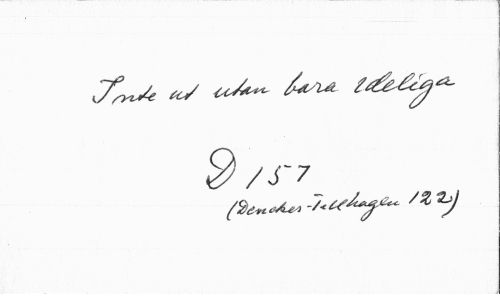 Inte ut utan bara ideliga
D 157
(Dencker-Tillhagen 122)